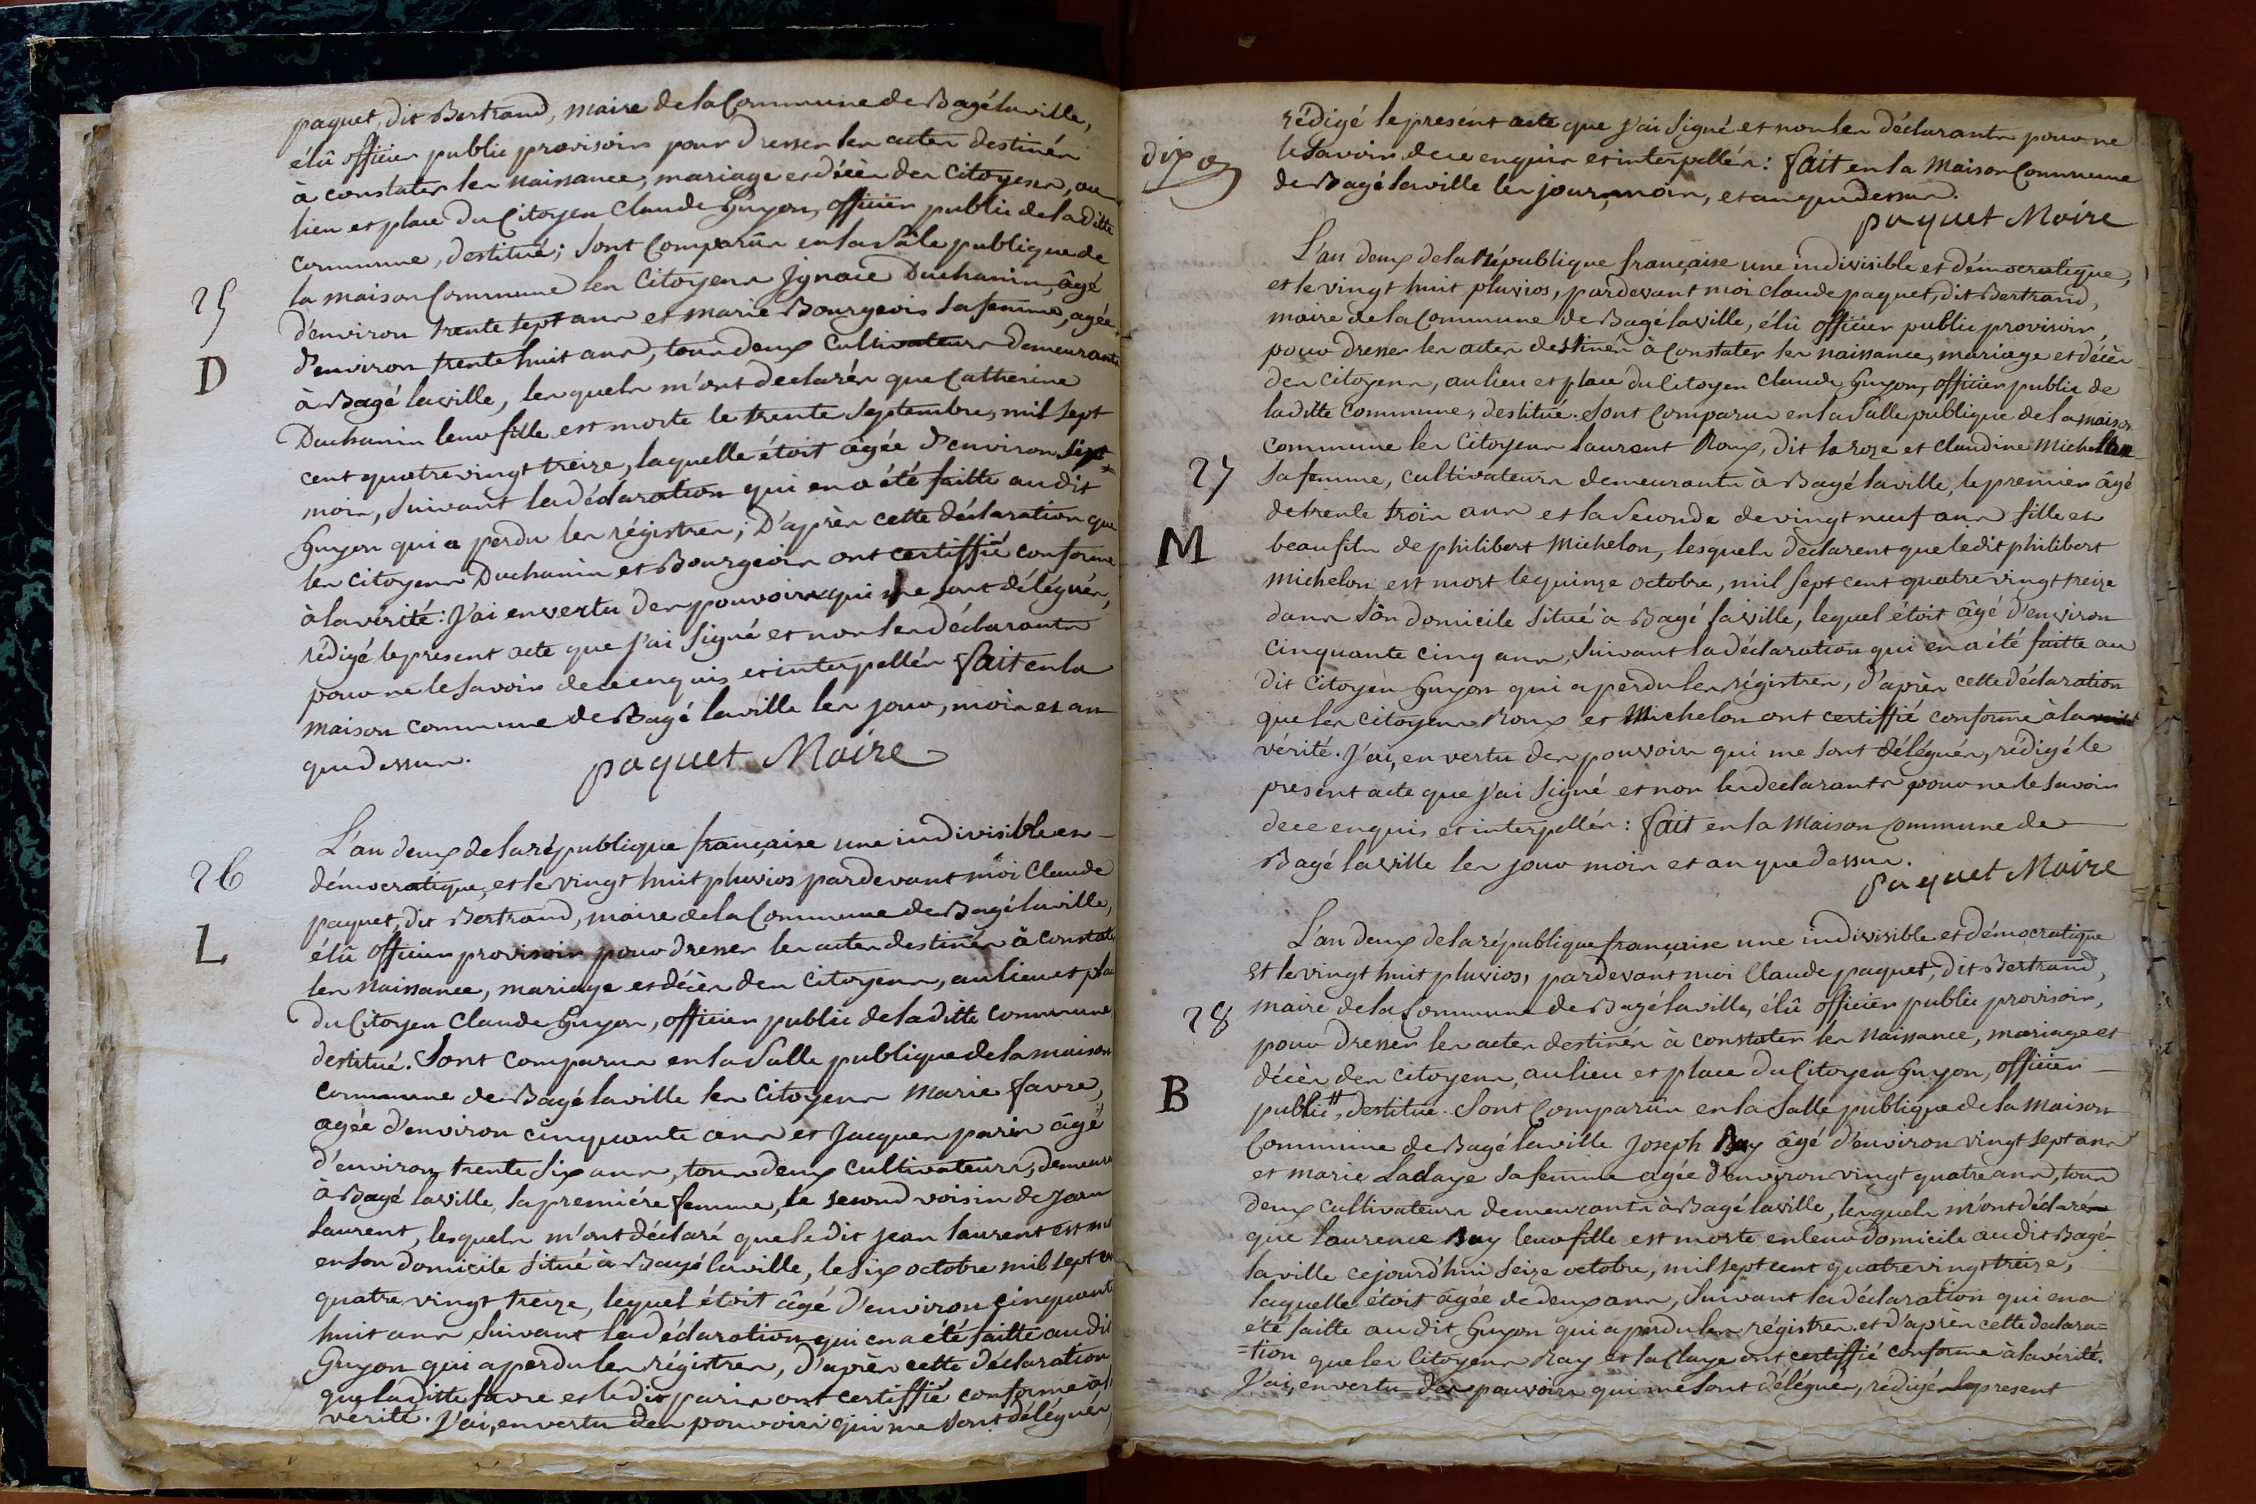 paquet, dit Bertrand, maire de la Commune de Bagé la ville,
élû officier public provisoire pour dresser les actes destinés
à constater les naissance, mariage et décès des Citoyens, au
lieu et place du Citoyen Claude Guyon, officier public de la ditte
commune, destitué; sont comparûs en la sâle publique de
la maison Commune les Citoyens Ignace Duchanin, âgé
25
d'environ trente sept ans et marie Bourgeois sa femme, agée
d'environ trente huit ans, tous deux cultivateurs demeurants
D
à Bagé laville, lesquels m'ont declarés que Catherine
Duchanin leur fille est morte le trente septembre, mil sept
cent quatre vingt treize, laquelle étoit âgée d'environ sept
mois, suivant la déclaration qui en a été faitte audit
Guyon qui a perdu les régistres; D'après cette déclaration que
les citoyens Duchanin et Bourgeois ont certiffié conforme
à la vérité: J'ai en vertu des pouvoirs qui me sont délégués,
rédigé le present acte que j'ai signé et non les déclarants
pour ne le savoir de ce enquis et interpellés fait en la
maison commune de Bagé laville les jour, mois et an
que dessus.
paquet Maire
L'an deux de la république française une indivisible et
26
démocratique, et le vingt huit pluvios pardevant moi Claude
paquet, dit Bertrand, maire de la Commune de Bagé laville,
L
élû officier provisoire pour dresser les actes destinés à constat
les naissance, mariage et décès des citoyens, au lieu et pla
du Citoyen Claude Guyon, officier public de la ditte commune
destitué. Sont comparus en la salle publique de la maison
commune de Bagé laville les Citoyens Marie favre,
agée d'environ cinquante ans et Jacques paris âgé
d'environ trente six ans, tous deux cultivateurs, demeura
à Bagé laville, la première femme, le second voisin de Jean
Laurent, lesquels m'ont déclaré que ledit jean laurent est mo
en son domicile situé à Bagé laville, le six octobre mil sept ce
quatre vingt treize, lequel étoit âgé d'environ cinquant
huit ans suivant la déclaration qui en a été faitte audit
Guyon qui a perdu les régistres, d'après cette déclaration
que laditte favre et ledit paris ont certiffié conforme à la
vérité. J'ai, en vertu des pouvoirs qui me sont délégués
rédigé le présent acte que j'ai signé et non les déclarants pour ne
le savoir, de ce enquis et interpellés: fait en la Maison Commune
dix
de Bagé laville les jour, mois, et an que dessus.
paquet Maire
L'an deux de la République française une indivisible et démocratique,
et le vingt huit pluvios, pardevant moi claude paquet, dit Bertrand,
maire de la Commune de Bagé laville, élû officier public provisoir,
pour dresser les actes destinés à constater les naissance, mariage et décès
des citoyens, au lieu et place du Citoyen Claude Guyon, officier public de
laditte commune, destitué. Sont comparus en la salle publique de la maison
commune les Citoyens laurent Roux, dit la roze et claudine Michelon
27
sa femme, cultivateurs demeurants à Bagé laville, le premier âgé
de trente trois ans et la seconde de vingt neuf ans fille et
M
beaufils de philibert Michelon, lesquels déclarent que ledit philibert
Michelon est mort le quinze octobre, mil sept cent quatre vingt treize
dans son domicile situé à Bagé laville, lequel étoit âgé d'environ
cinquante cinq ans, suivant la déclaration qui en a été faitte au
dit citoyen Guyon qui a perdu les régistres, d'après cette déclaration
que les citoyens Roux et Michelon ont certiffié conforme à la
vérité. J'ai, en vertu des pouvoirs qui me sont délégués, rédigé le
present acte que j'ai signé et non les declarants pour ne le savoir
de ce enquis et interpellés: fait en la Maison Commune de
Bagé laville les jour mois et an que dessus.
paquet Maire
L'an deux de la république française une indivisible et démocratique
et le vingt huit pluvios, pardevant moi Claude paquet, dit Bertrand,
maire de la Commune de Bagé laville, élû officier public provisoir,
28
pour dresser les actes destinés à constater les naissance, mariage et
décès des citoyens, au lieu et place du Citoyen Guyon, officier
B
public, destitué. Sont Comparûs en la salle publique de la Maison
Commune de Bagé laville Joseph Bay âgé d'environ vingt sept ans
et marie Laclaye sa femme agée d'environ vingt quatre ans, tous
deux cultivateurs demeurants à Bagé laville, lesquels m'ont déclarés
que laurence Bay leur fille est morte en leur domicile audit Bagé
laville cejourd'hui seize octobre, mil sept cent quatre vingt treize,
laquelle étoit âgée de deux ans, suivant la déclaration qui en a
été faitte audit Guyon qui a perdu les régistres et d'après cette declara=
=tion que les Citoyens Ray et la Claye ont certiffié conforme à la vérité.
J'ai, en vertu des pouvoirs qui me sont délégués, rédigé le present